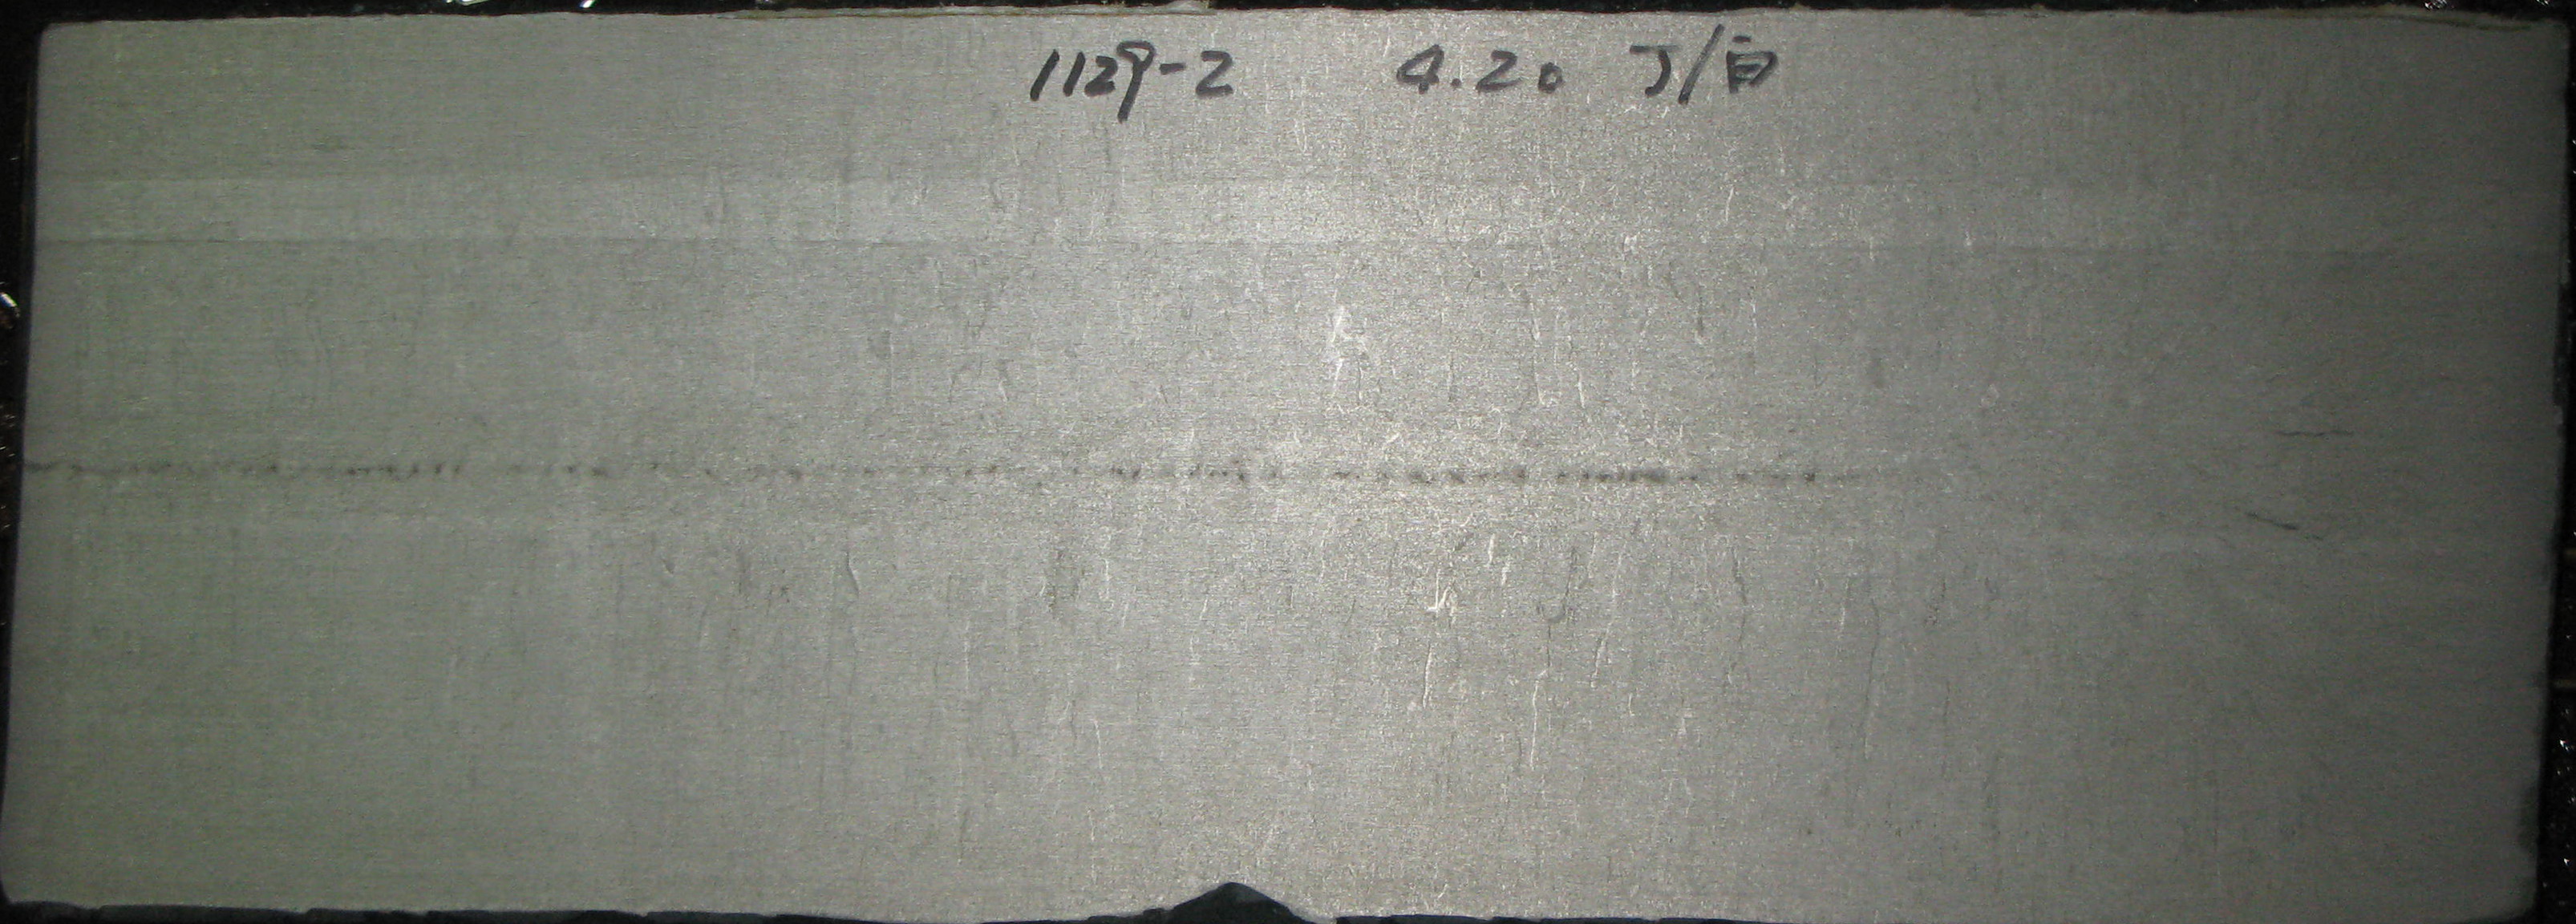 1129-2 4.20 丁/白